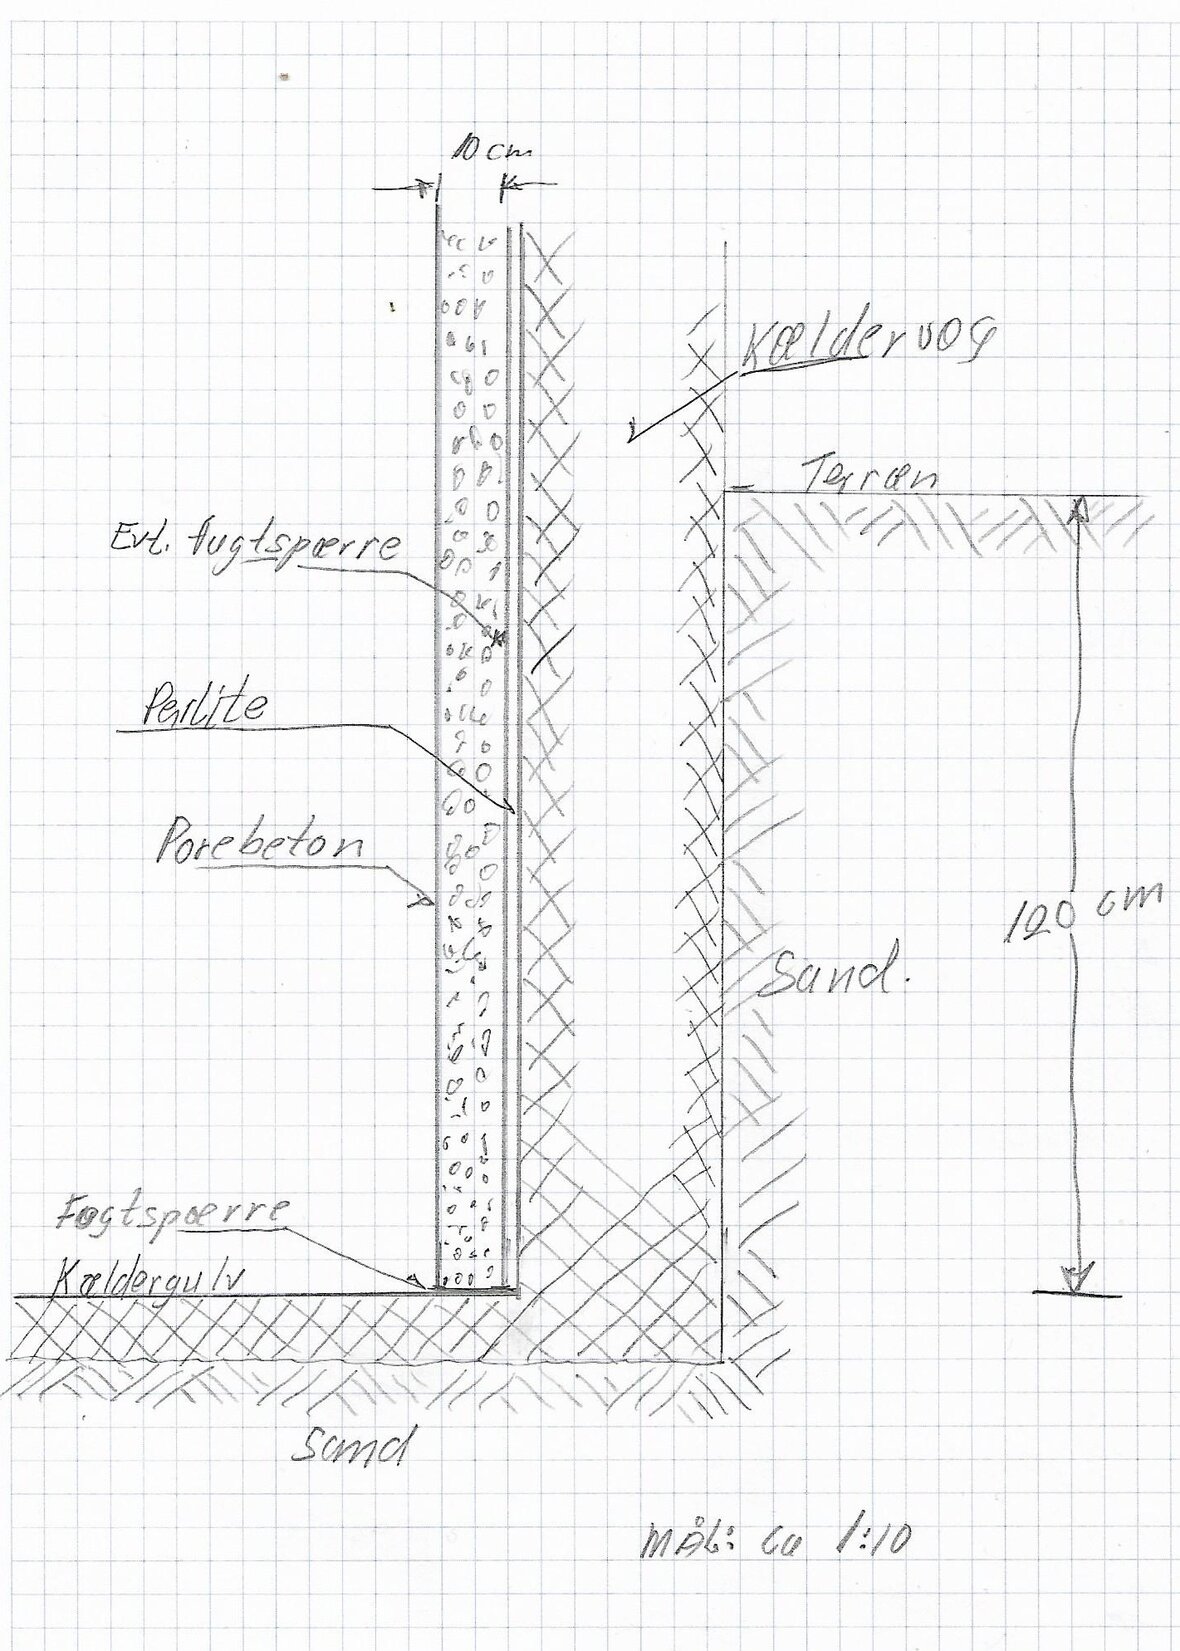 10 cm
Kældervæg
Terræn
Evt. fugtspærre
Perlite
Porebeton
120 cm
Sand.
Fugtspærre
Kældergulv
Sand
MÅL: Ca 1:10